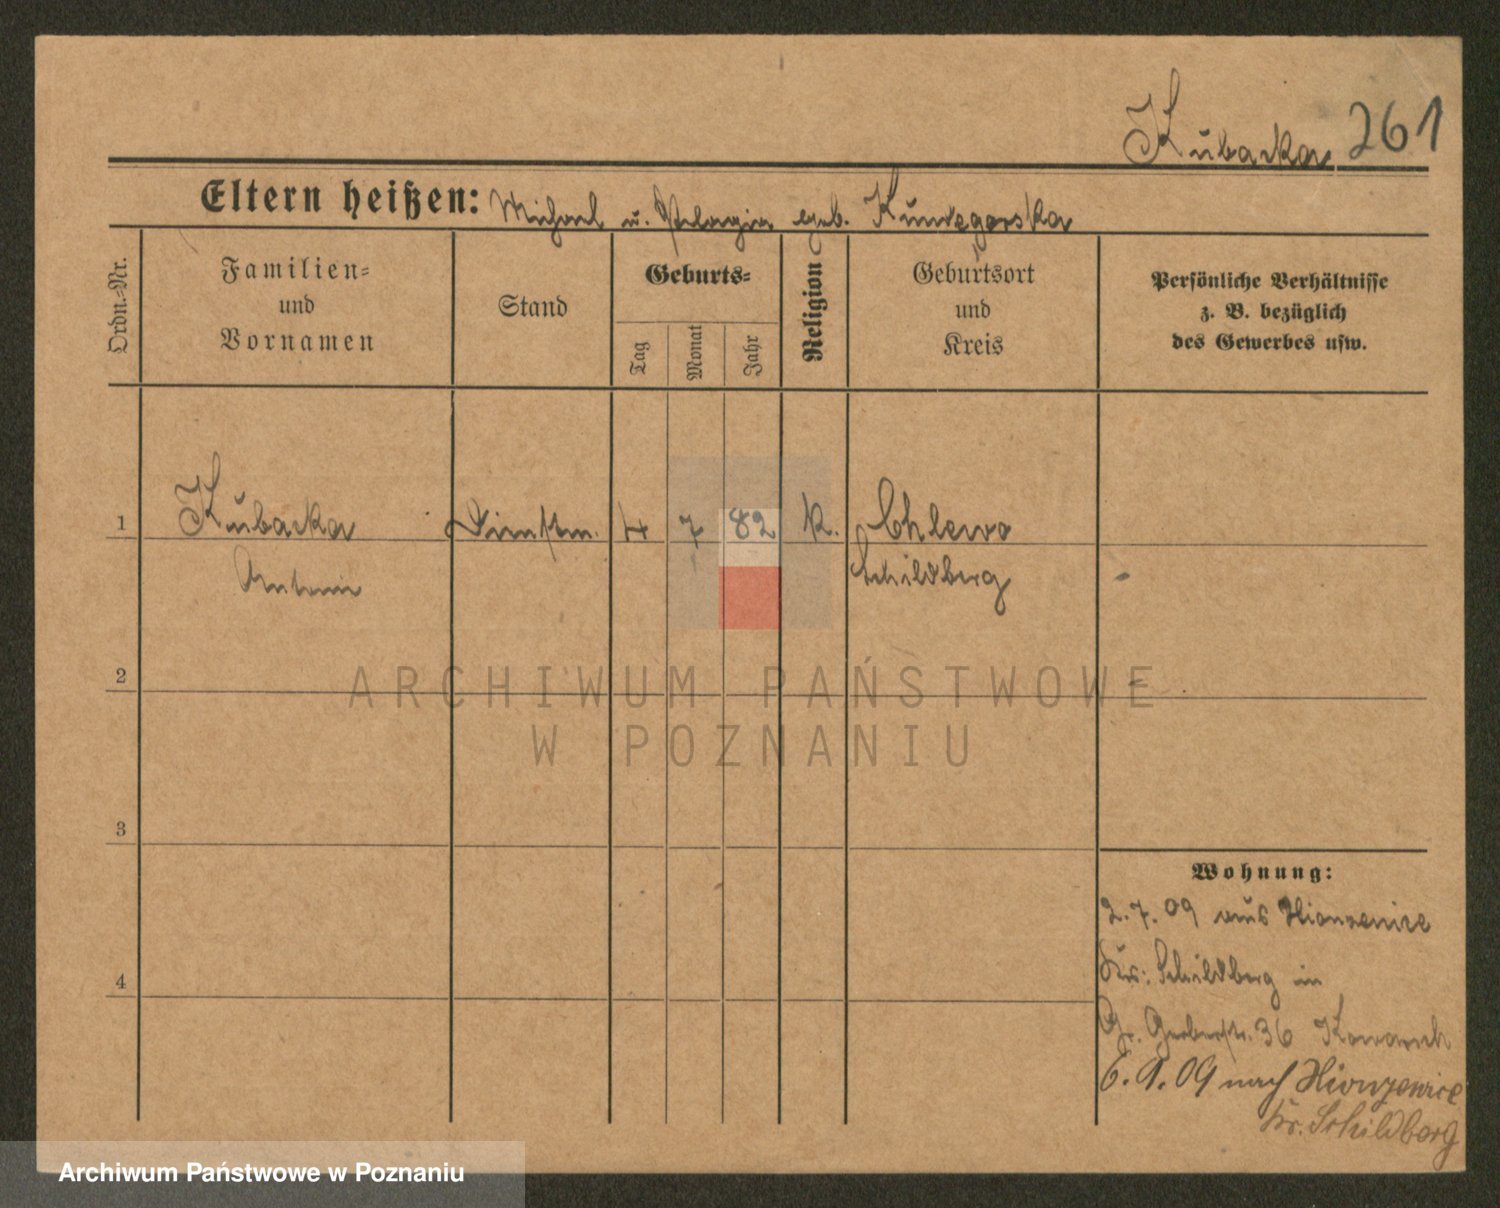 Kubacka 261
Eltern heißen: Michael u. Pelagia geb.
Ordn.-Nr.
Familien-
und
Vornamen
Stand
Geburts-
Tag
Monat
Jahr
Religion
Geburtsort
und
Kreis
Persönliche Verhältnisse
z. B. bezüglich
des Gewerbes usw.
1 Kubacka Dienstm. 4 7 82 K. Chlewo
Antonie Schildberg
2
ARCHIWUM PAŃSTWOWE
W POZNANIU
3
Wohnung:
2.7.09 aus
Krs: Schildberg in
4
Gr. Gerberstr. 36
6.9.09 nach
Kr. Schildberg
Archiwum Państwowe w Poznaniu